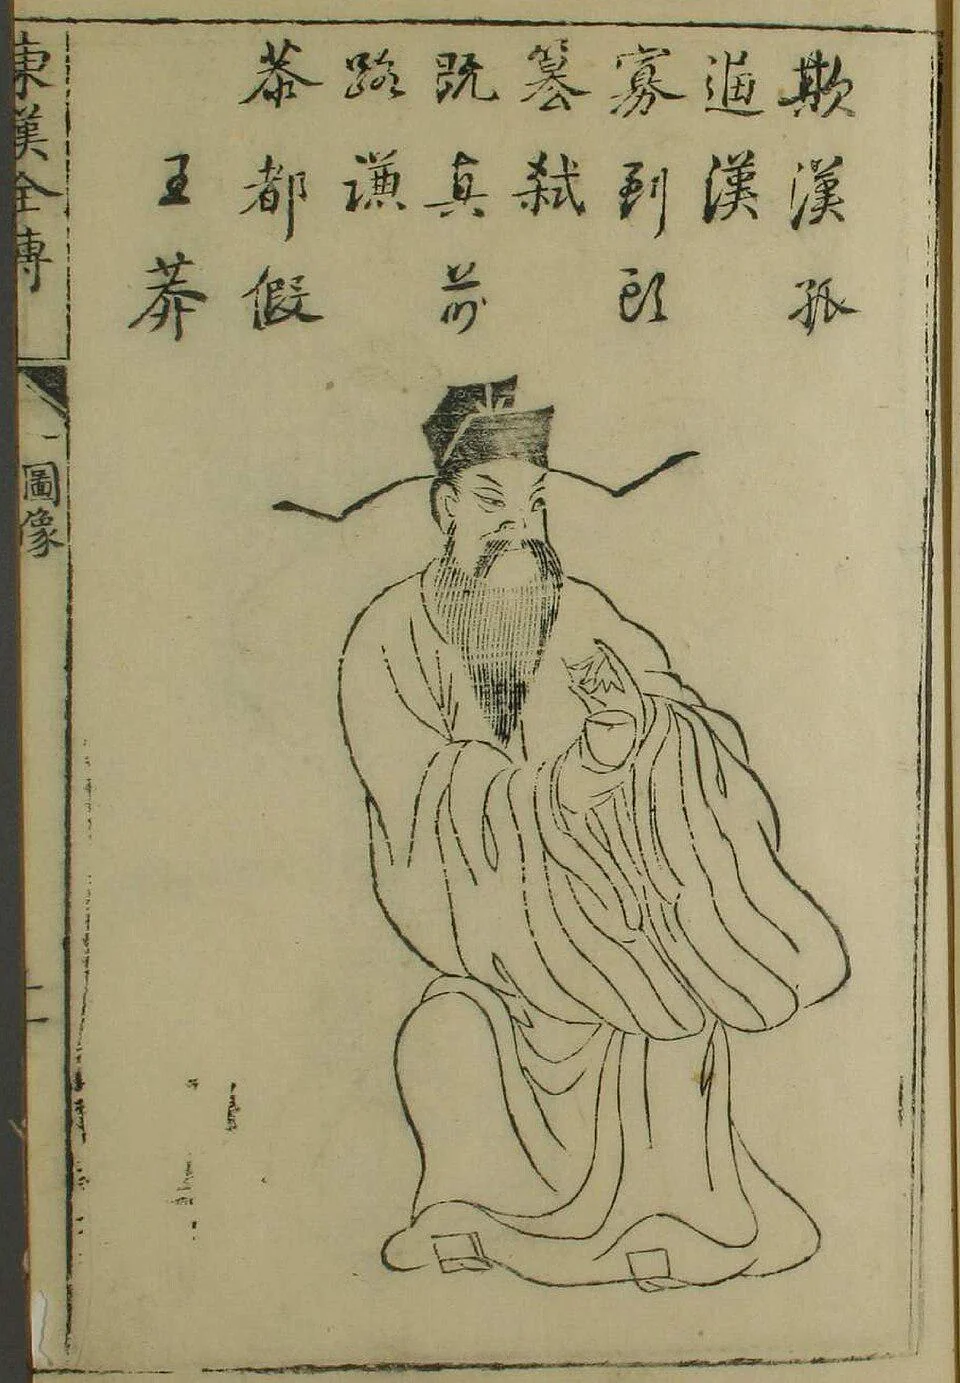 欺漢孤
逼漢
寡到頭
簒弑
既真前
路謙
恭都假
王莽
東漢全傳
圖像